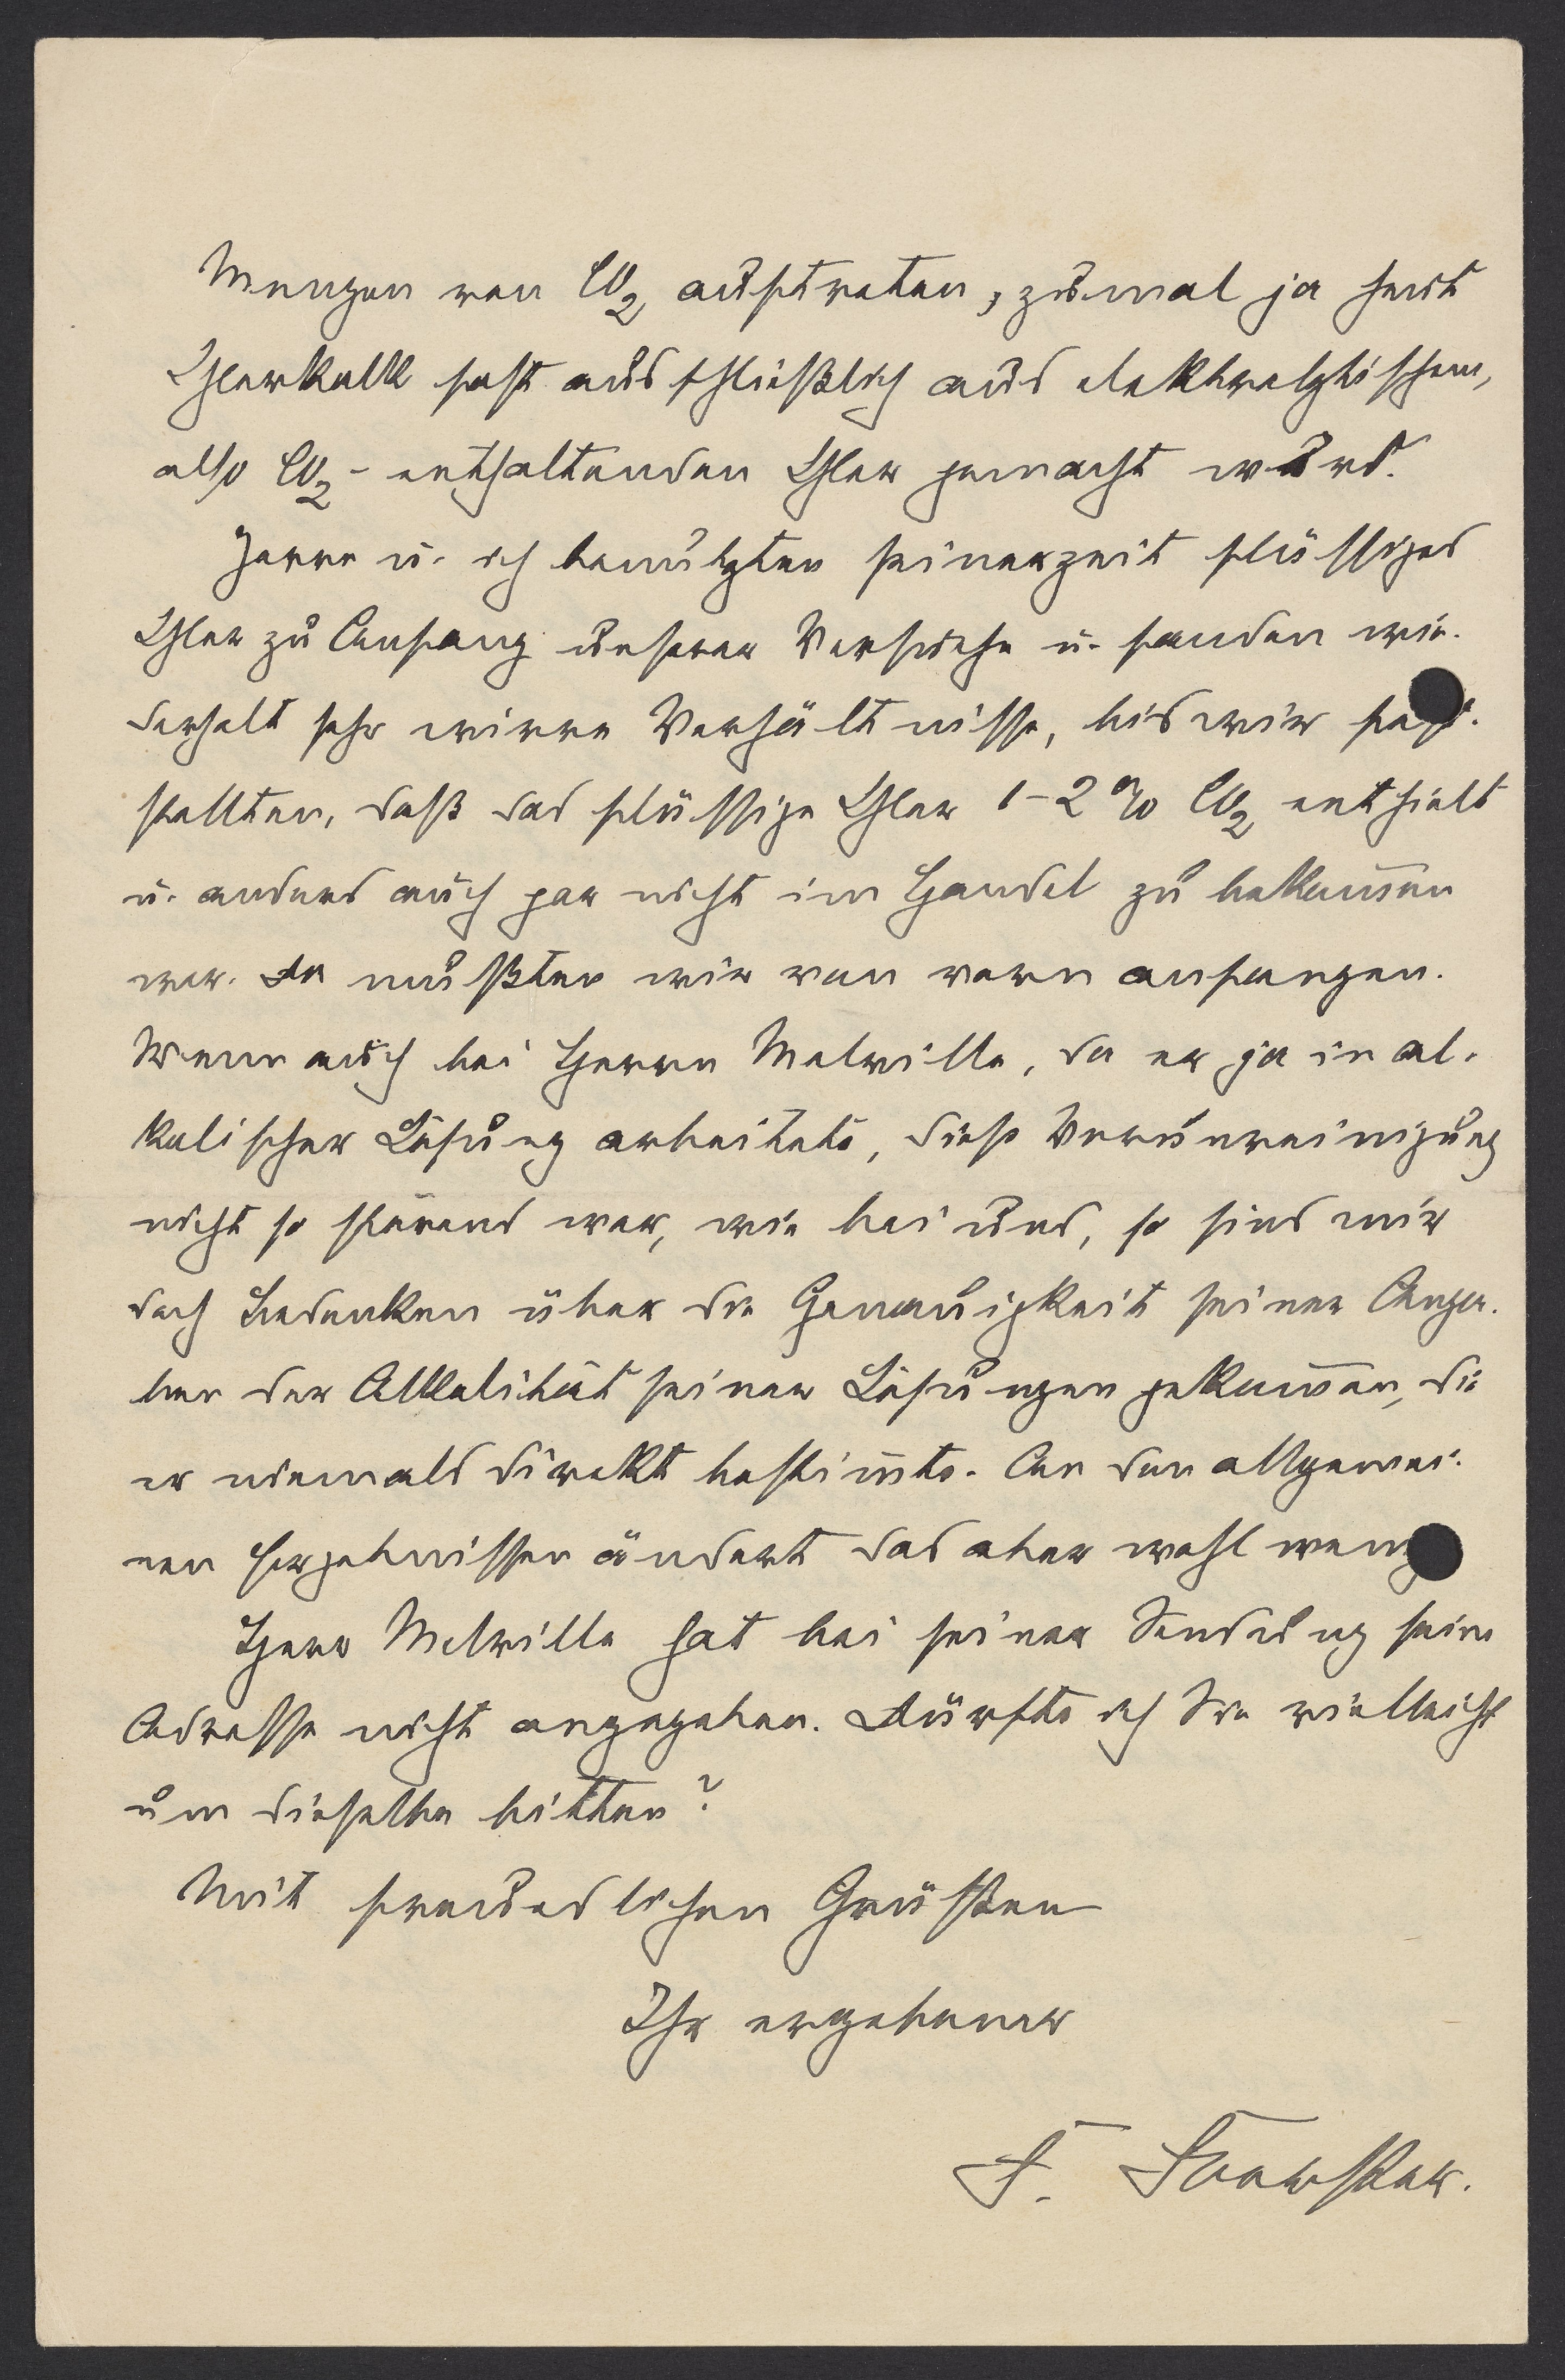 Mengen von CO₂ auftreten, zumal ja heut
Chlorkalk fast ausschließlich aus elektrolytischem,
also CO₂-enthaltenden Chlor gemacht wird.
Jorre u. ich benutzten seinerzeit flüssiges
Chlor zu Anfang unserer Versuche u. fanden wie-
derholt sehr wirre Verhältnisse, bis wir fest-
stellten, daß das flüssige Chlor 1-2 % CO₂ enthielt
u. anders auch gar nicht im Handel zu bekom̅en
war. Da mußten wir von vorn anfangen.
Wenn auch bei Herrn Melville, da er ja in al-
kalischer Lösung arbeitete, diese Verunreinigung
nicht so störend war, wie bei uns, so sind mir
doch Bedenken über die Genauigkeit seiner Anga-
ben der Alkalität seiner Lösungen gekom̅en, die
er niemals direkt bestim̅te. An den allgemei-
nen Ergebnissen ändert das aber wohl wenig
Herr Melville hat bei seiner Sendung seine
Adresse nicht angegeben. Dürfte ich Sie vielleicht
um dieselbe bitten?
Mit freundlichen Grüßen
Ihr ergebener
F. Foerster.